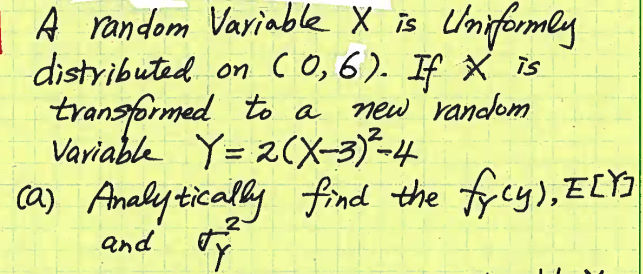 A random Variable X is Uniformly
distributed on (0,6). If X is
transformed to a new random
Variable Y=2(X-3)²-4
(a) Analytically find the f_Y(y), E[Y]
and σ_Y²